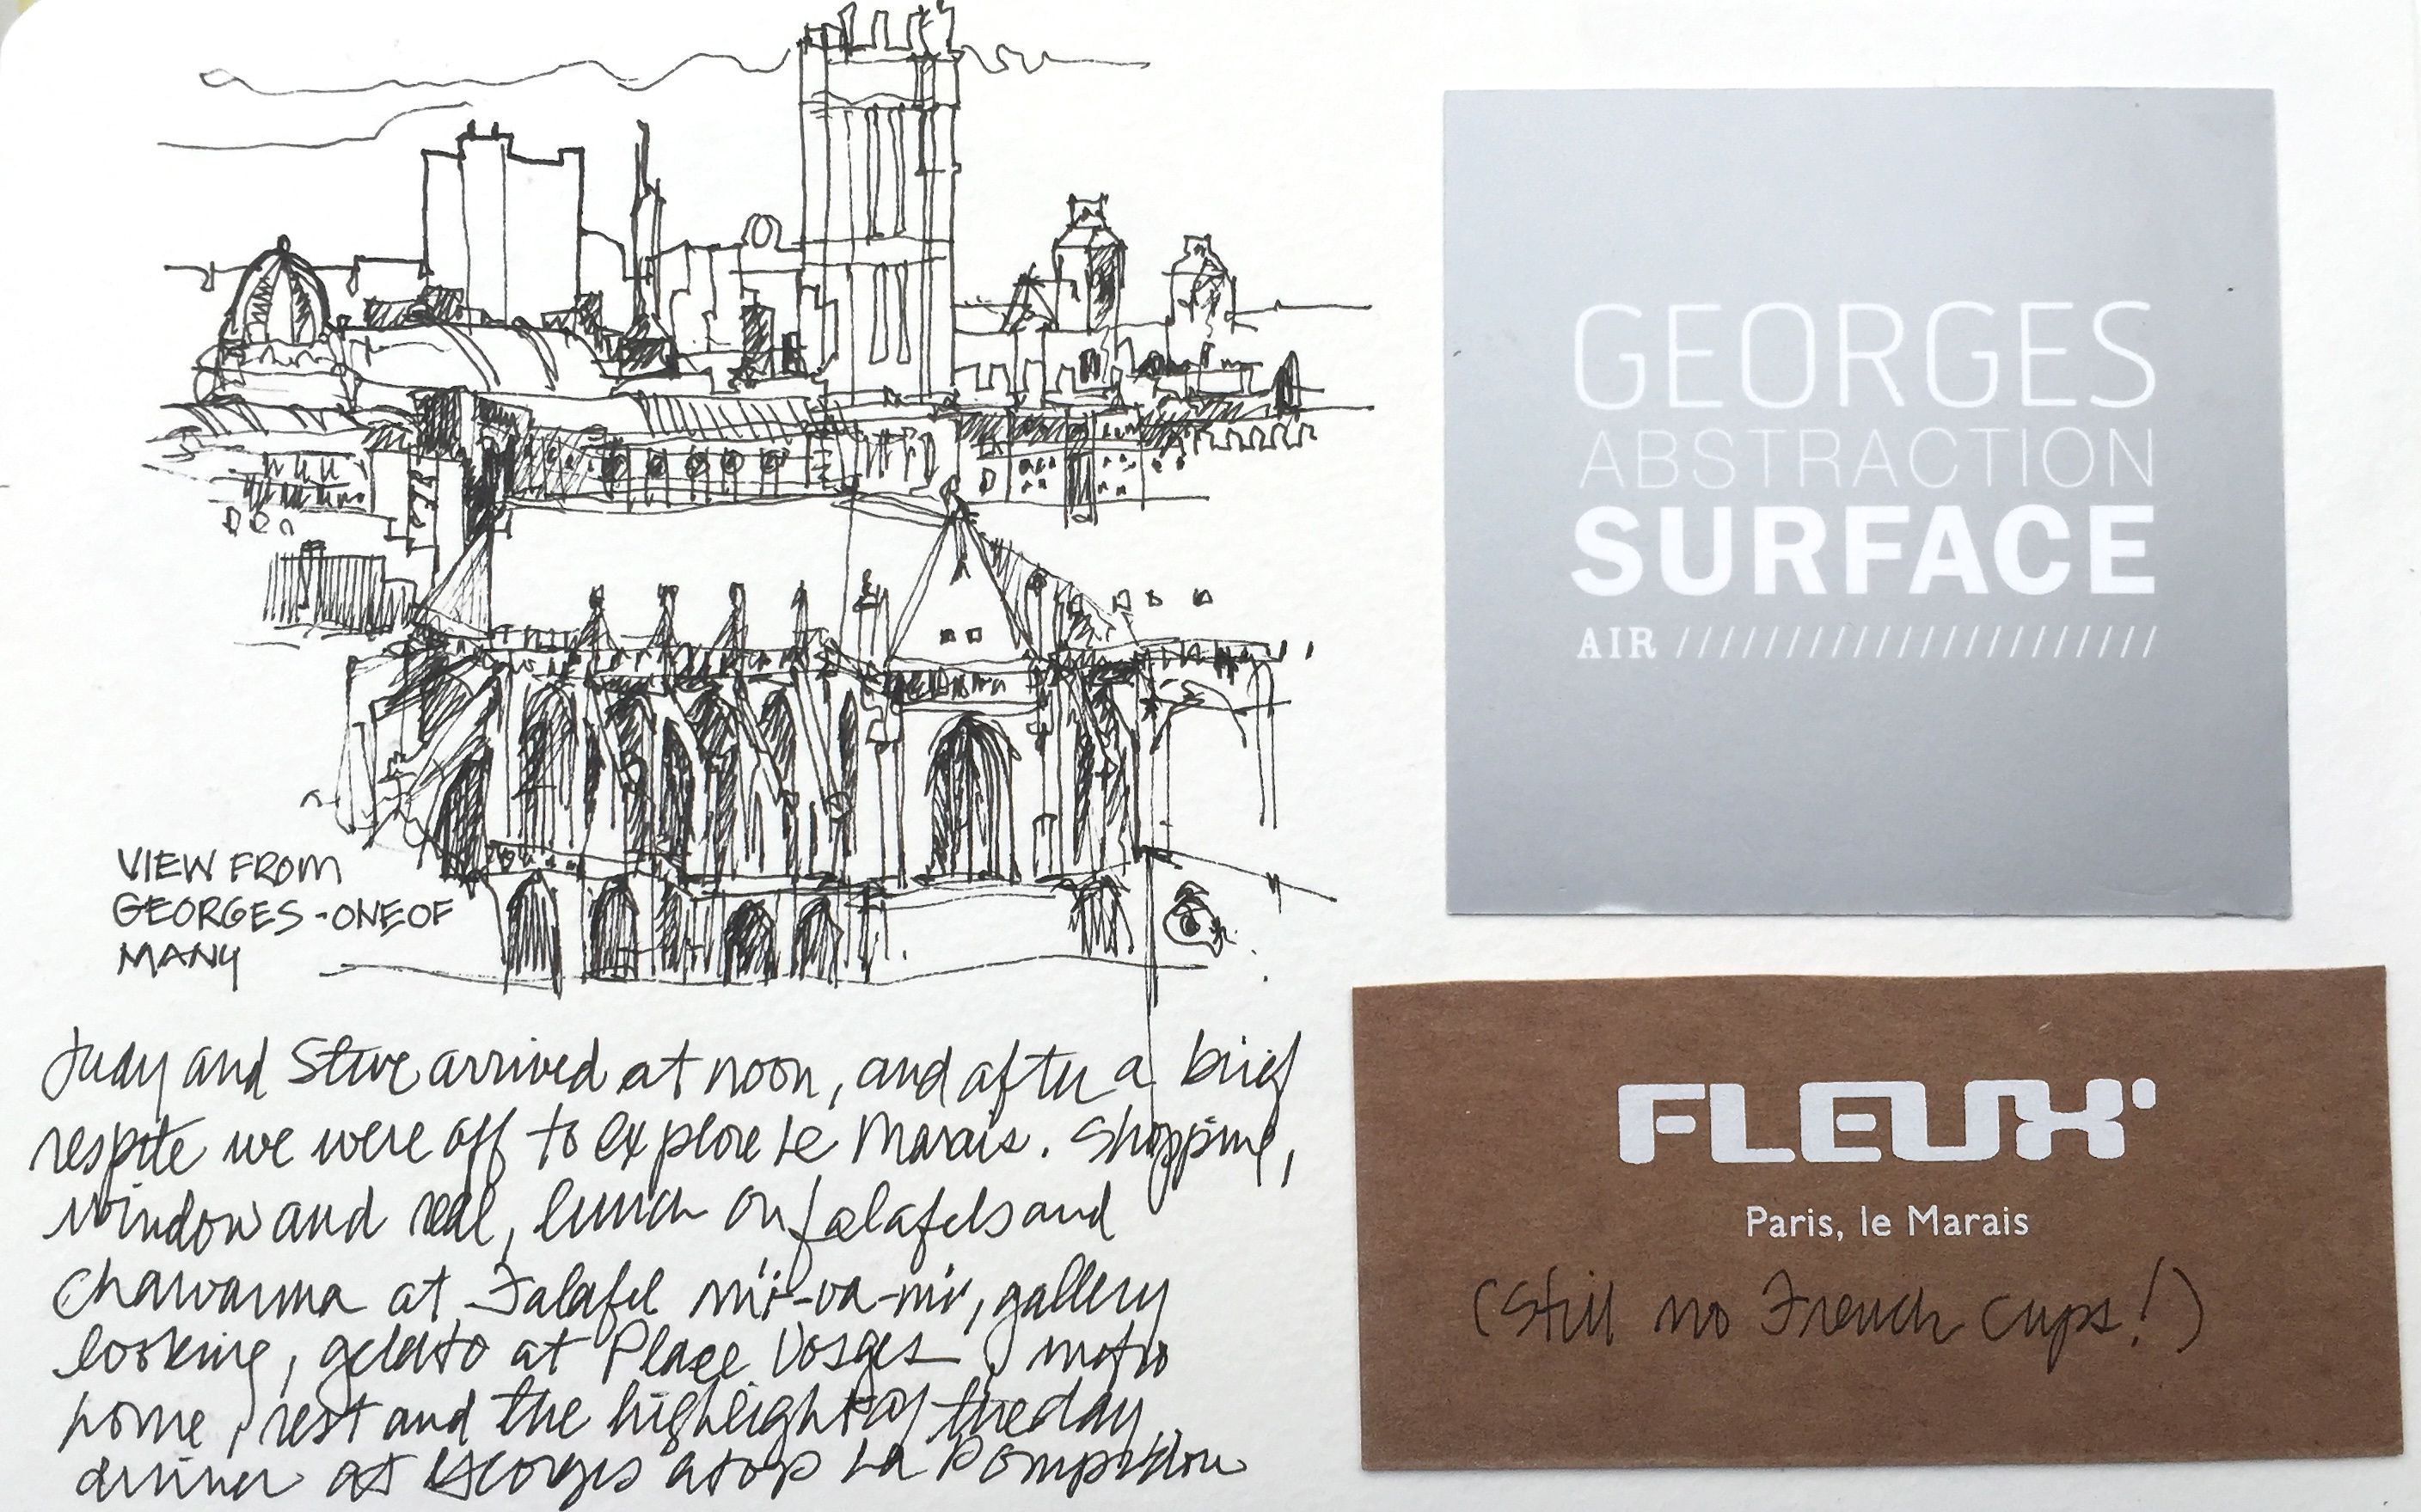 VIEW FROM
GEORGES - ONE OF
MANY
Judy and Steve arrived at noon, and after a brief
respite we were off to explore Le Marais. Shopping,
window and real, lunch on falafels and
Chawarma at Falafel mi-va-mi, gallery
looking, gelato at Place Vosges, metro
home, rest and the highlight of the day,
dinner at Georges atop La Pompidou
GEORGES
ABSTRACTION
SURFACE
AIR ///////////////////////
FLEUX'
Paris, le Marais
(Still no French cups!)